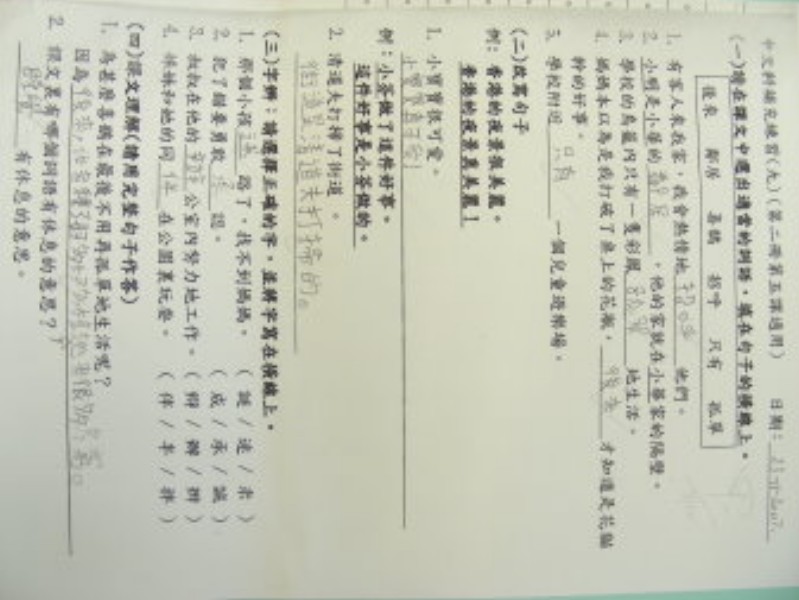 中文科補充練習(九)(第二冊第五課適用) 日期:
(一)請在課文中選出適當的詞語,填在句子的橫線上。
後來 鄰居 喜鵲 招呼 只有 孤單
1. 有客人來我家,我會熱情地招呼他們。
2. 小明是小華的鄰居,他的家就在小華家的隔壁。
3. 學校的鳥籠內只有一隻彩鳳孤單地生活。
4. 媽媽本以為是我打破了桌上的花瓶,後來才知道是花貓
幹的好事。
5. 學校附近只有一個兒童遊樂場。
(二)改寫句子
例:香港的夜景很美麗。
香港的夜景真美麗!
1. 小寶寶很可愛。
小寶寶真可愛!
例:小芬做了這件好事。
這件好事是小芬做的。
2. 清道夫打掃了街道。
街道是清道夫打掃的。
(三)字辨:請選擇正確的字,並將字寫在橫線上。
1. 那個小孩迷路了,找不到媽媽。 ( 謎 / 迷 / 未 )
2. 犯了錯要勇敢承認。 ( 成 / 承 / 誠 )
3. 叔叔在他的辦公室內努力地工作。 ( 辯 / 辦 / 辨 )
4. 妹妹和她的同伴在公園裏玩耍。 ( 伴 / 半 / 胖 )
(四)課文理解(請用完整句子作答)
1. 為甚麼喜鵲在最後不用再孤單地生活呢?
因為後來,
2. 課文裏有哪個詞語有休息的意思?
有休息的意思。